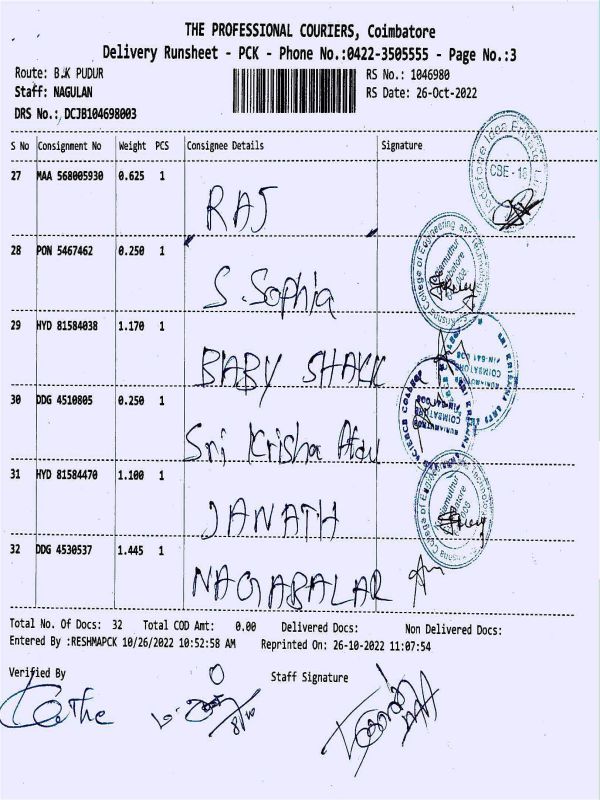 THE PROFESSIONAL COURIERS, Coimbatore
Delivery Runsheet - PCK - Phone No.:0422-3505555 - Page No.:3
Route: B.K PUDUR
RS No.: 1046980
Staff: NAGULAN
RS Date: 26-Oct-2022
DRS No.: DCJB104698003
S No Consignment No Weight PCS Consignee Details Signature
27 MAA 568005930 0.625 1
RAJ
CBE - 18
28 PON 5467462 0.250 1
S. Sophia
29 HYD 81584038 1.170 1
BABY SHALK
30 DDG 4510805 0.250 1
Sri Krisha
31 HYD 81584470 1.100 1
JANATH
32 DDG 4530537 1.445 1
NAGABALAR
Total No. Of Docs: 32 Total COD Amt: 0.00 Delivered Docs: Non Delivered Docs:
Entered By :RESHMAPCK 10/26/2022 10:52:58 AM Reprinted On: 26-10-2022 11:07:54
Verified By
Staff Signature